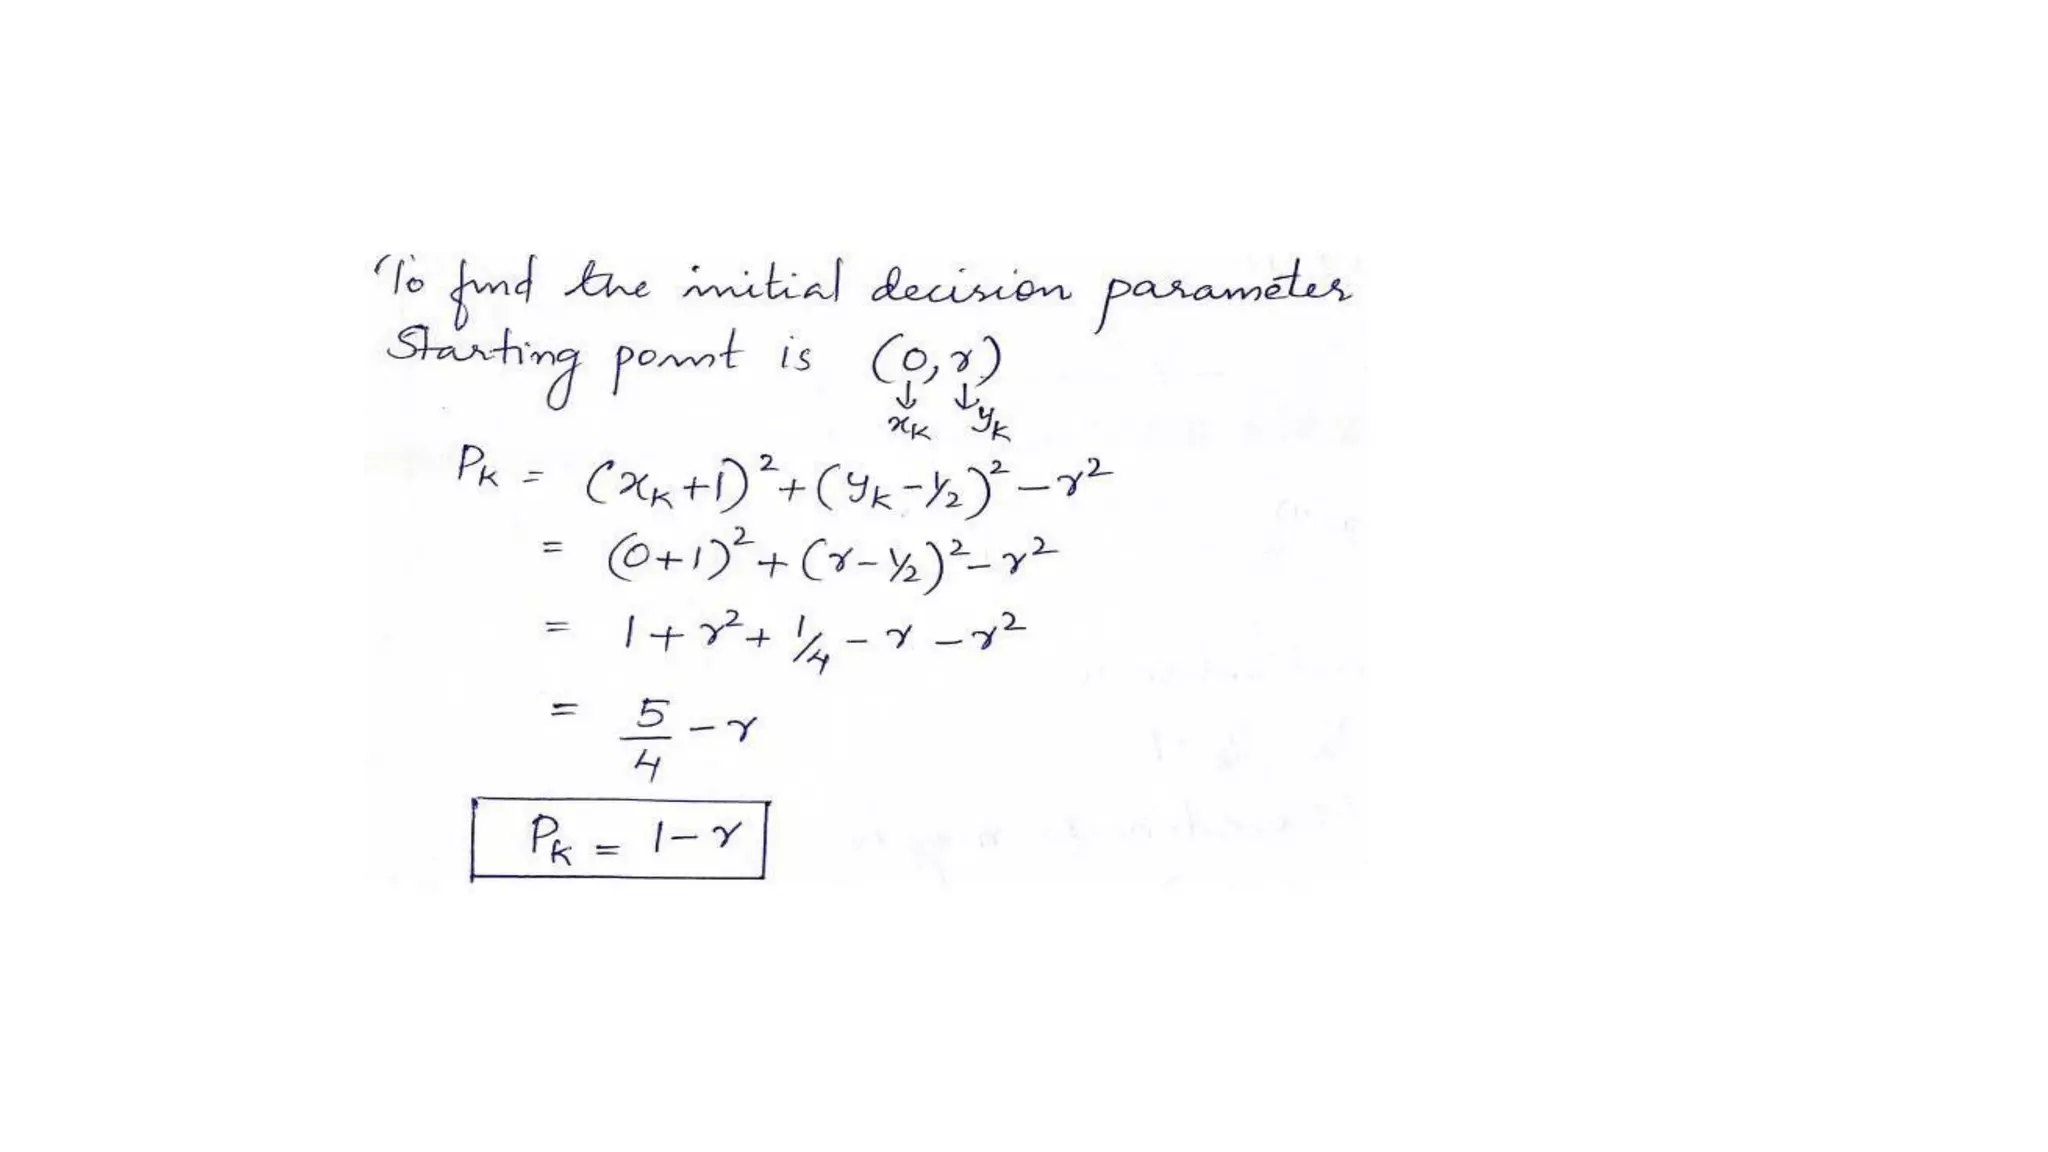 To find the initial decision parameter
Starting point is (0, r)
↓ ↓
xK yK
PK = (xK+1)² + (yK-1/2)² - r²
= (0+1)² + (r-1/2)² - r²
= 1 + r² + 1/4 - r - r²
= 5/4 - r
PK = 1 - r